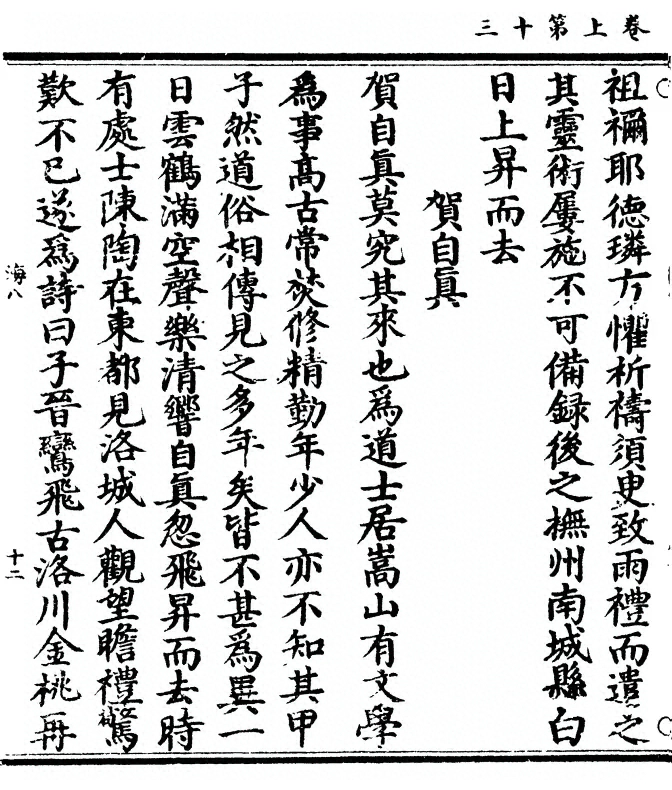 卷上第十三
祖禰耶德璘方懼祈禱須臾致雨禮而遣之
其靈術屢施不可備録後之撫州南城縣白
日上昇而去
賀自真
賀自真莫究其來也爲道士居嵩山有文學
爲事高古常焚修精勤年少人亦不知其甲
子然道俗相傳見之多年矣皆不甚爲異一
日雲鶴滿空聲樂清響自真忽飛昇而去時
有處士陳陶在東都見洛城人觀望瞻禮驚
歎不已遂爲詩曰子晉鸞飛古洛川金桃再
海八
十二